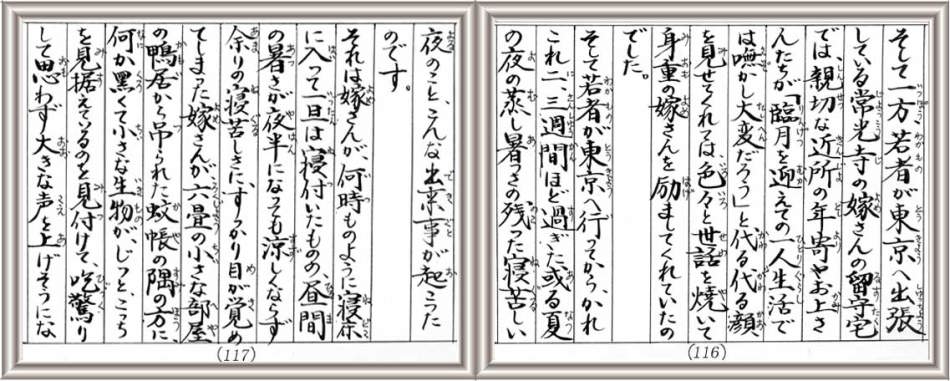 そして一方若者が東京へ出張
している常光寺の嫁さんの留守宅
では、親切な近所の年寄やお上さ
んたちが「臨月を迎えての一人生活で
は嘸かし大変だろう」と代る代る顔
を見せてくれては、色々と世話を焼いて
身重の嫁さんを励ましてくれていたの
でした。
そして若者が東京へ行ってから、かれ
これ二、三週間ほど過ぎた或る夏
の夜の蒸し暑さの残った寝苦しい
(116)
夜のこと、こんな出来事が起こった
のです。
それは嫁さんが、何時ものように寝床
に入って一旦は寝付いたものの、昼間
の暑さが夜半になっても涼しくならず
余りの寝苦しさに、すっかり目が覚め
てしまった嫁さんが、六畳の小さな部屋
の鴨居から吊られた蚊帳の隅の方に、
何か黒くて小さな生物が、じっと、こちら
を見据えているのを見付けて、吃驚り
して思わず大きな声を上げそうにな
(117)